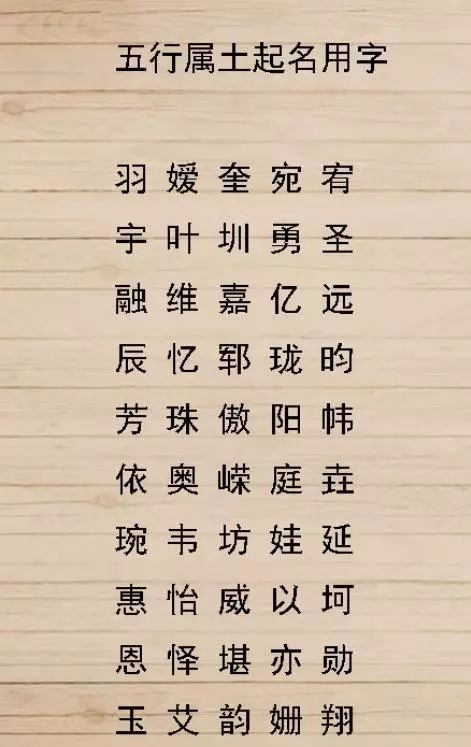 五行属土起名用字
羽 嫒 奎 宛 宥
宇 叶 圳 勇 圣
融 维 嘉 亿 远
辰 忆 郓 珑 昀
芳 珠 傲 阳 帏
依 奥 嵘 庭 垚
琬 韦 坊 娃 延
惠 怡 威 以 坷
恩 怿 堪 亦 勋
玉 艾 韵 姗 翔